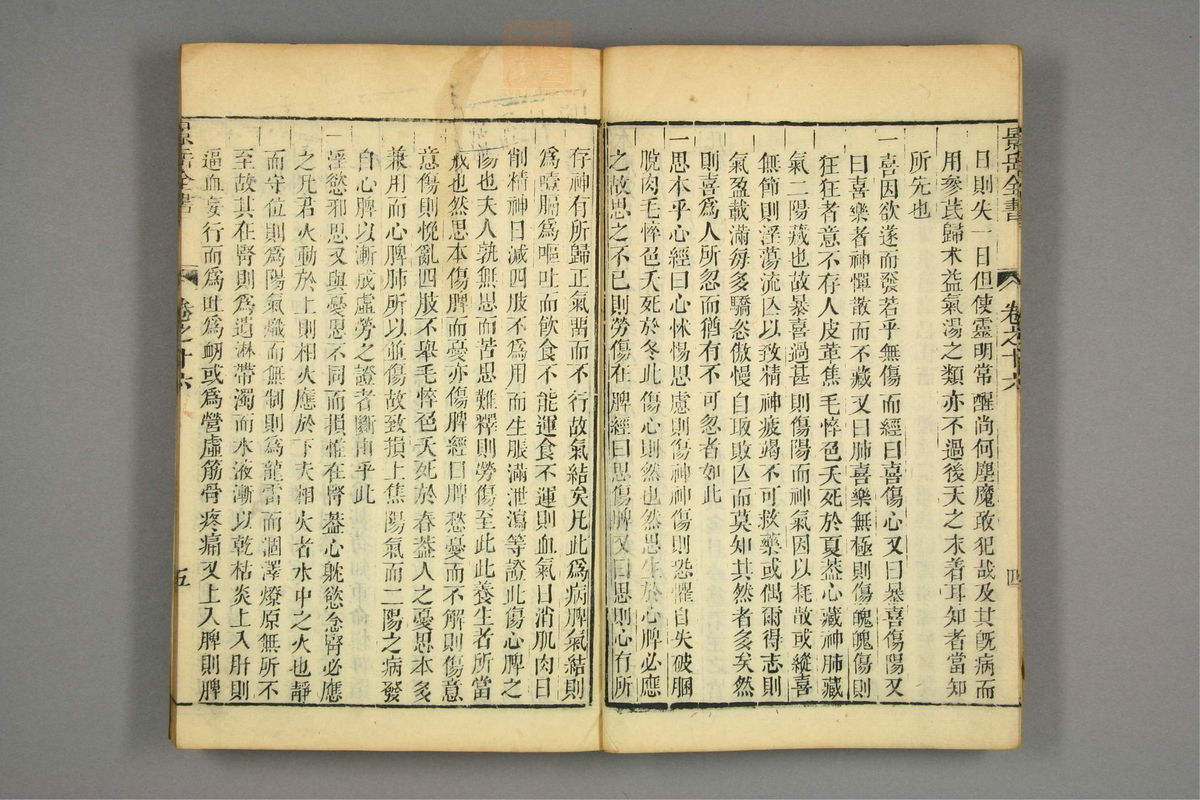 景岳全書
卷之十六
四
日則失一日但使靈明常醒尚何塵魔敢犯哉及其既病而
用參芪歸术益氣湯之類亦不過後天之末着耳知者當知
所先也
一喜因欲遂而發若乎無傷而經曰喜傷心又曰暴喜傷陽又
曰喜樂者神憚散而不藏又曰肺喜樂無極則傷魄魄傷則
狂狂者意不存人皮革焦毛悴色夭死於夏葢心藏神肺藏
氣二陽藏也故暴喜過甚則傷陽而神氣因以耗散或縱喜
無節則淫蕩流亾以致精神疲竭不可救藥或偶爾得志則
氣盈載滿每多驕恣傲慢自取敗亾而莫知其然者多矣然
則喜爲人所忽而猶有不可忽者如此
一思本乎心經曰心怵惕思慮則傷神神傷則恐懼自失破䐃
脫肉毛悴色夭死於冬此傷心則然也然思生於心脾必應
之故思之不已則勞傷在脾經曰思傷脾又曰思則心有所
存神有所歸正氣畱而不行故氣結矣凡此爲病脾氣結則
爲噎膈爲嘔吐而飲食不能運食不運則血氣日消肌肉日
削精神日減四肢不爲用而生脹滿泄瀉等證此傷心脾之
傷也夫人孰無思而苦思難釋則勞傷至此此養生者所當
戒也然思本傷脾而憂亦傷脾經曰脾愁憂而不解則傷意
意傷則悗亂四肢不舉毛悴色夭死於春葢人之憂思本多
兼用而心脾肺所以並傷故致損上焦陽氣而二陽之病發
自心脾以漸成虛勞之證者斷由乎此
一淫慾邪思又與憂思不同而損惟在腎葢心躭慾念腎必應
之凡君火動於上則相火應於下夫相火者水中之火也靜
而守位則爲陽氣熾而無制則爲龍雷而涸澤燎原無所不
至故其在腎則爲遺淋帶濁而水液漸以乾枯炎上入肝則
逼血妄行而爲吐爲衂或爲營虛筋骨疼痛又上入脾則脾
景岳全書
卷之十六
五